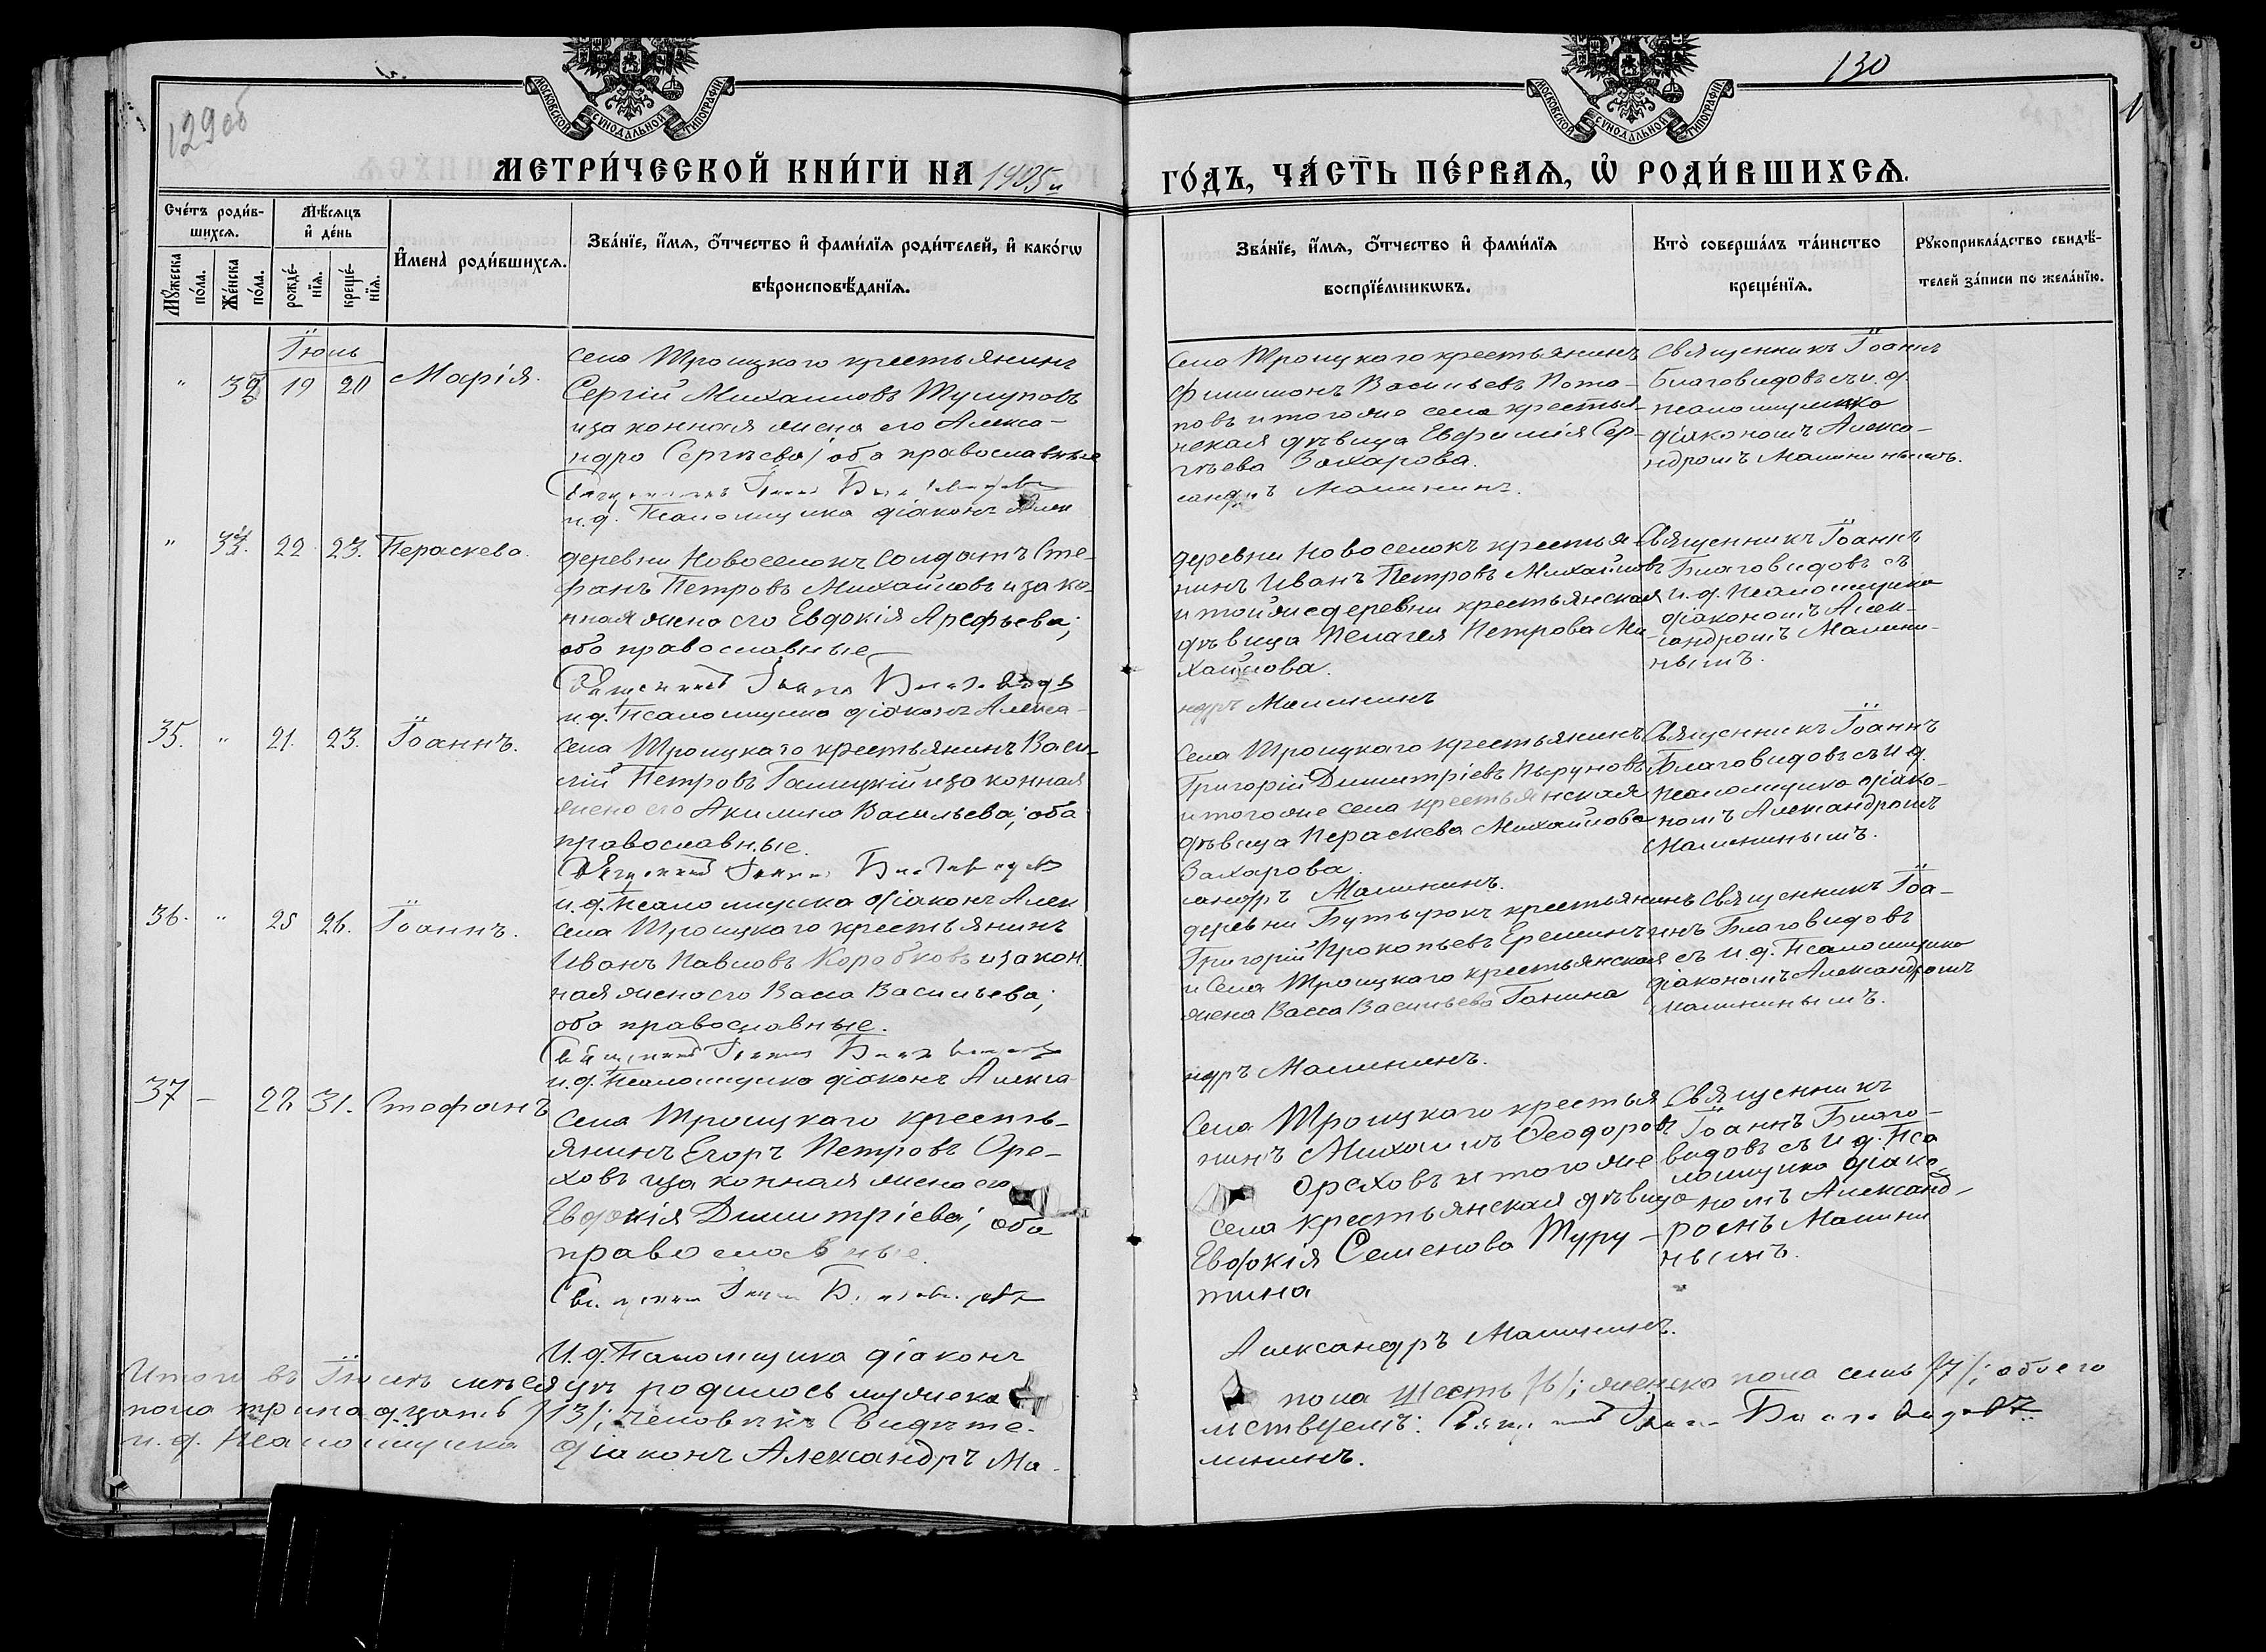 129об
130
МОСКОВСКОЙ СѴНОДАЛЬНОЙ ТИПОГРАФІИ
МОСКОВСКОЙ СѴНОДАЛЬНОЙ ТИПОГРАФІИ
МЕТРИ́ЧЕСКОЙ КНИ́ГИ НА
ГО́ДЪ, ЧА́СТЬ ПЕ́РВАѦ, Ѡ РОДИ́ВШИХСѦ.
Сче́тъ роди́в-
шихсѧ.
Мꙋ́жеска
по́ла.
Же́нска
по́ла.
Мѣ́сѧцъ
и де́нь
рожде́-
нїѧ.
креще́-
нїѧ.
И́мена роди́вшихсѧ.
Зва́нїе, и́мѧ, ѻ́тчество и фами́лїѧ роди́телей, и како́гѡ
вѣроисповѣ́данїѧ.
Зва́нїе, и́мѧ, ѻ́тчество и фами́лїѧ
воспрїе́мникѡвъ.
Кто̀ соверша́лъ та́инство
креще́нїѧ.
Рꙋкоприкла́дство свидѣ́-
телей за́писи по жела́нїю.
Іюль
" 19 20 Марія.
Села Троицкаго крестьянинъ
Сергій Михаиловъ Тулуповъ
и законная жена его Алекса-
ндра Сергѣева; оба православные
и.д. Псаломщика діаконъ Алек
Села Троицкаго крестьянинъ
Филимонъ Васильевъ Пота-
повъ и того же села крестья-
нская дѣвица Евфимія Сер-
гѣева Захарова.
сандръ Малининъ.
Священникъ Іоаннъ
Благовидовъ съ и.д.
псаломщика
діакономъ Алекса-
ндромъ Малининымъ.
" 22 23. Параскева.
деревни Новоселокъ солдатъ Сте-
фанъ Петровъ Михайловъ и зако-
нная жена его Евдокія Арефьева;
оба православные
Священникъ Іоаннъ Благовидовъ
и.д. Псаломщика діаконъ Алекса-
деревни Новоселокъ крестья-
нинъ Иванъ Петровъ Михайловъ
и той же деревни крестьянская
дѣвица Пелагея Петрова Ми-
хайлова.
ндръ Малининъ
Священникъ Іоаннъ
Благовидовъ съ
и.д. Псаломщика
діакономъ Алек-
сандромъ Малини-
нымъ.
35. " 21. 23. Іоаннъ.
Села Троицкаго крестьянинъ Васи-
лій Петровъ Галицкій и законная
жена его Акилина Васильева; оба
православные.
Священникъ Іоаннъ Благовидовъ
и.д. Псаломщика діаконъ Алек
Села Троицкаго крестьянинъ
Григорій Димитріевъ Пыруновъ
и того же села крестьянская
дѣвица Параскева Михайлова
Захарова.
сандръ Малининъ.
Священникъ Іоаннъ
Благовидовъ съ и.д.
псаломщика діако-
номъ Александромъ
Малининымъ.
36. " 25 26. Іоаннъ.
Села Троицкаго крестьянинъ
Иванъ Павловъ Коробковъ и закон.
ная жена его Васса Васильева;
оба православные.
и.д. Псаломщика діаконъ Алекса
деревни Бутырокъ крестьянинъ
Григорій Прокопьевъ Ереминъ
и Села Троицкаго крестьянская
жена Васса Васильева Ганина
ндръ Малининъ.
Священникъ Іоа-
ннъ Благовидовъ
съ и.д. Псаломщика
діакономъ Александромъ
Малининымъ.
37 – 31. Стефанъ
Села Троицкаго кресть-
янинъ Егоръ Петровъ Оре-
ховъ и законная жена его
Евдокія Димитріева; оба
православные.
И.д. Псаломщика діаконъ
Села Троицкаго крестья-
нинъ Михаилъ Ѳеодоровъ
Ореховъ и того же
села крестьянская дѣвица
Евдокія Семенова Туру-
тина
Александръ Малининъ.
Священникъ
Іоаннъ Благо-
видовъ съ и.д. Пса
ломщика діако-
номъ Александ-
ромъ Малини
нымъ.
Итого въ Іюлѣ мѣсяцѣ родилось мужска
пола шесть /6/; женска пола семь /7/; обоего
пола тринадцать /13/; человѣкъ Свидѣте-
льствуемъ: Священникъ Іоаннъ Благовидовъ
и.д. Псаломщика діаконъ Александръ Ма-
лининъ.